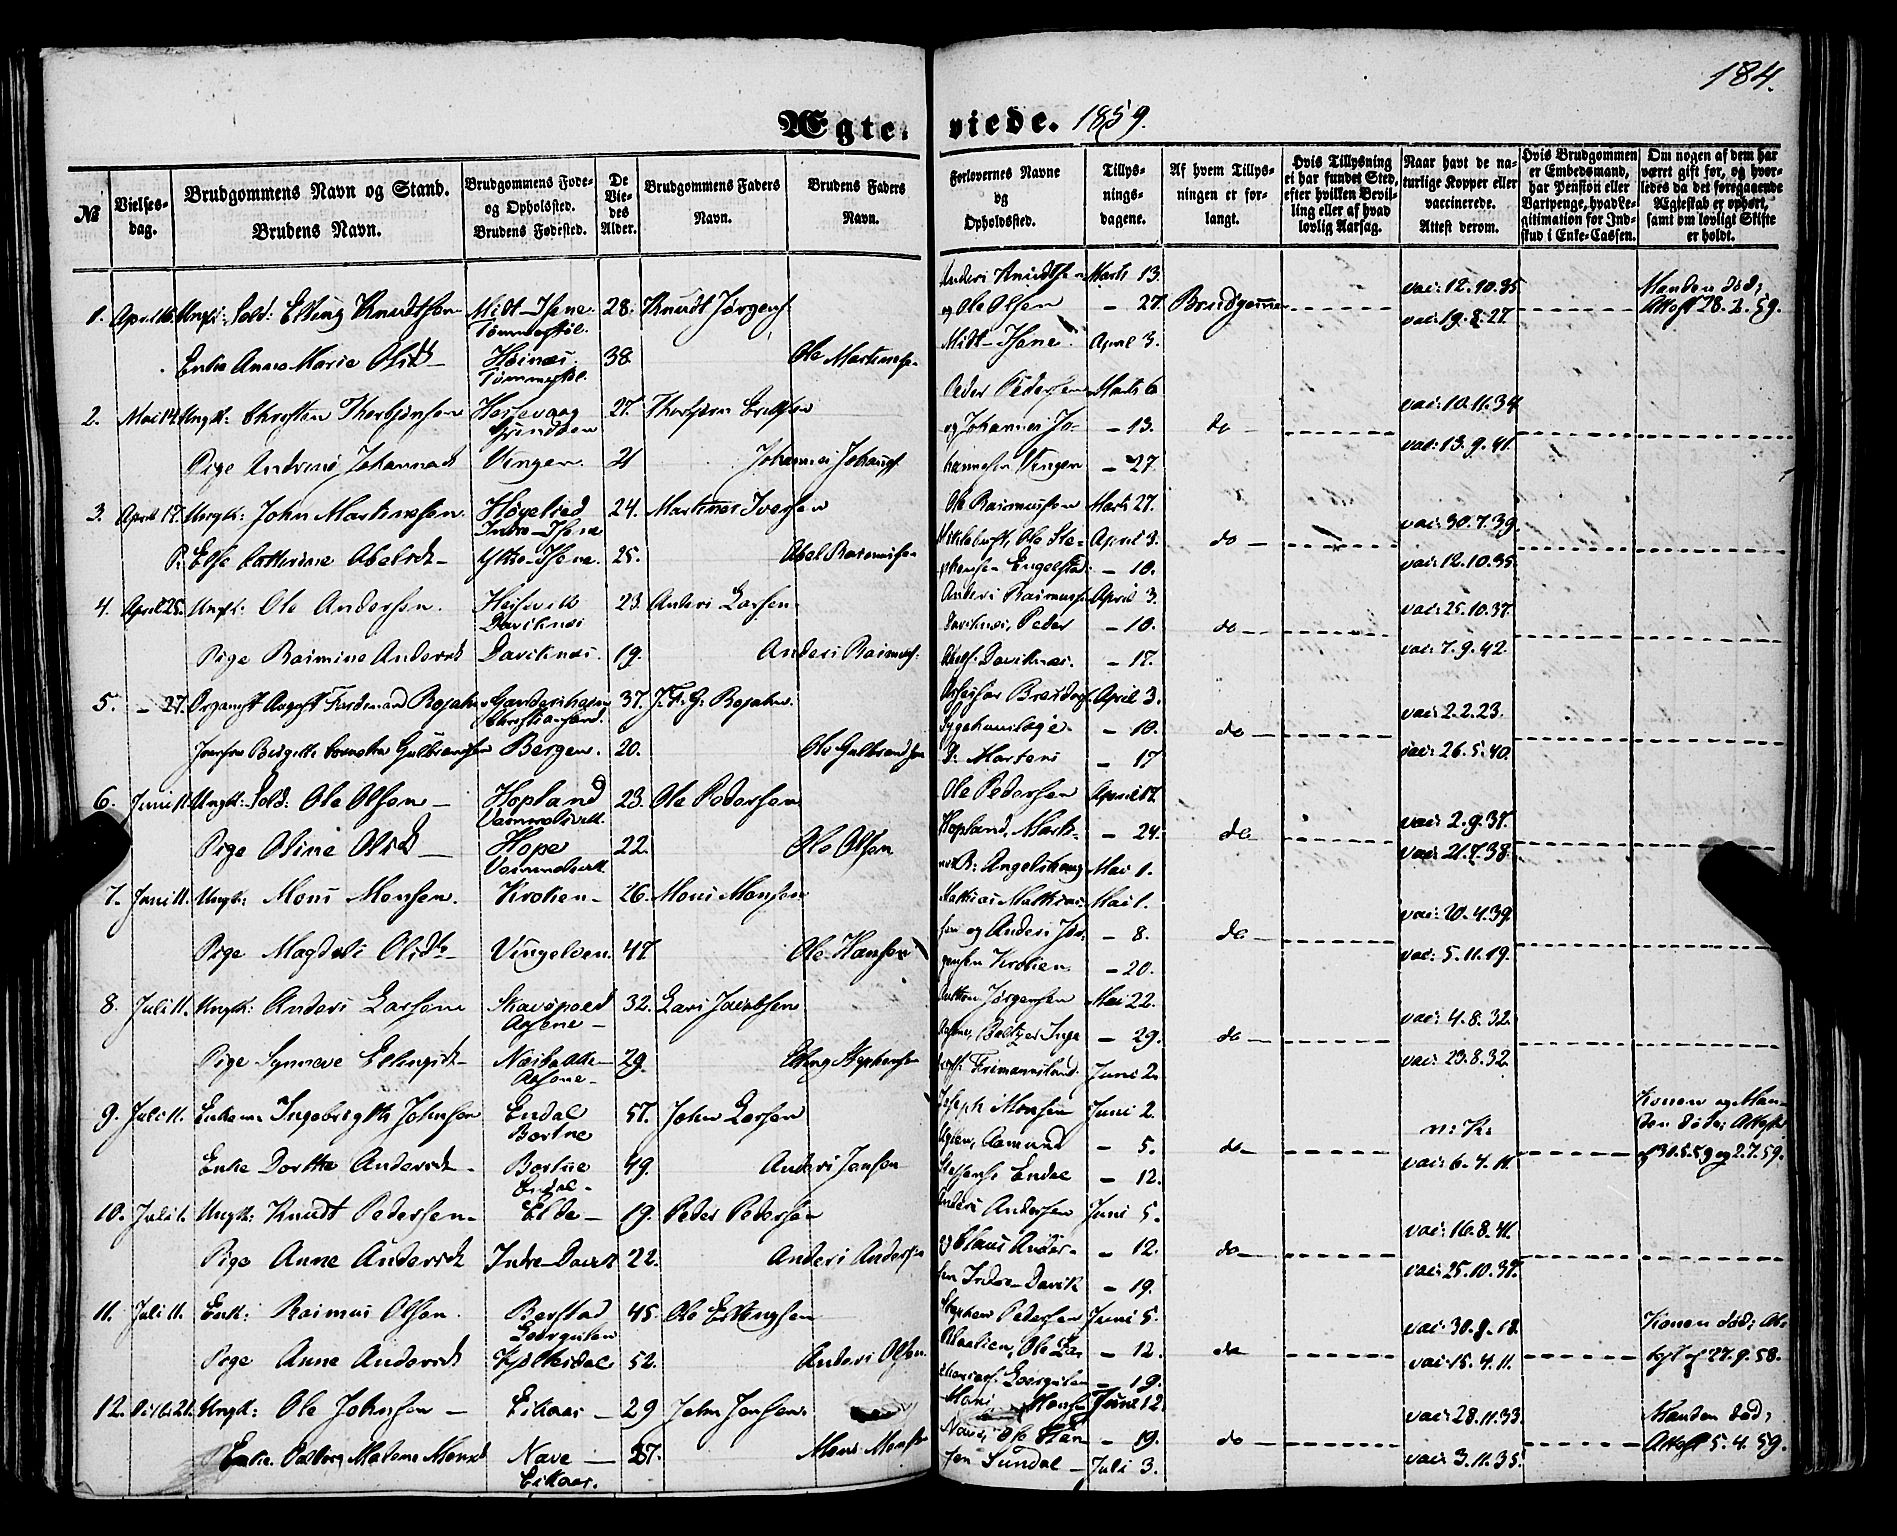 184.
Ægteviede. 1859.
№
Vielses-
dag.
Brudgommens Navn og Stand.
Brudens Navn.
Brudgommens Føde-
og Opholdssted.
Brudens Fødested.
De
Vie-
des
Alder.
Brudgommens Faders
Navn.
Brudens Faders
Navn.
Forlovernes Navne
og
Opholdssted.
Tillys-
nings-
dagene.
Af hvem Tillys-
ningen er for-
langt.
Hvis Tillysning
ei har fundet Sted,
efter hvilken Bevil-
ling eller af hvad
lovlig Aarsag.
Naar havt de na-
turlige Kopper eller
vaccinerede.
Attest derom.
Hvis Brudgommen
er Embedsmand,
har Pension eller
Vartpenge, hvad Le-
gitimation for Ind-
skud i Enke-Cassen.
Om nogen af dem har
været gift før, og hvor-
ledes da det foregaaende
Ægteskab er ophørt,
samt om lovligt Skifte
er holdt.
1. April 16. Ungk: Sold: Elling Knudtsen Midt-Isene 28. Knudt Jørgens. Anders Knudtsen Marts 13. vac: 12.10.35 Manden død;
Tømmestøl. og Ole Olsen – 27. Brudgommen vac: 19.8.27. Attest 28.2.59.
Enke Anne Marie Olsdt Høinæs 38. Ole Martinsen Midt-Isene. April 3.
Tømmestøl.
2. Mai 14. Ungk: Christen Thorbjønsen 27. Thorbjørn Peder Pedersen Marts 6 vac: 10.11.34
og Johannes Jo- – 13. do vac: 13.9.41.
Pige Andrine Johannesdt Vingen 21 Johannes Johanns. hannesen Vingen – 27.
3. April 17. Ungk: John Martinussen Høyelied 24. Martinus Iversen Ole Rasmussen Marts 27. vac: 30.7.39.
Indre-Isene Ole Ste- April 3. do
P: Else Catherine Abelsdt Ytre-Isene. 25. Abel Rasmussen phensen Engelstad – 10. vac: 12.10.35.
4. April 25. Ungk: Ole Andersen. Heisevik 23. Anders Larsen Anders Rasmussen April 3. vac: 25.10.37.
Daviknæs Daviknæs, Peder – 10. do
Pige Rasmine Andersdt Daviknæs. 19. Anders Rasmus. Abels. Daviknæs. – 17. vac: 7.9.42.
5. – 27. Organist August Ferdinand Rojahn 37. J. F. G. Rojahn. April 3. vac: 2.2.23.
Christiansand. – 10. do
Jomfru Birgitte Gulbransen Bergen. 20. Ole Gulbrandsen D: Martens – 17 vac: 26.5.40.
6. Juni 11. Ungk: Sold: Ole Olsen Hopland 23. Ole Pedersen Ole Pedersen April 17. vac: 2.9.37.
Hopland, Marti- – 24. do
Pige Oline Olsdt Hope 22. Ole Olsen Mai 1. vac: 21.7.38.
7. Juni 11. Ungk: Mons Monsen. Kroken 26. Mons Monsen Mathias Mathias- Mai 1. vac: 20.4.39.
sen og Anders Jør- – 8. do
Pige Magdeli Olsdt Vingelven 47. Ole Hansen gensen Kroken. – 20. vac: 5.11.19.
8. Juli 11. Ungk: Anders Larsen 32. Lars Jacobsen Jørgensen Mai 22. vac: 4.8.32.
Baltzer Inge – 29. do
Pige Synneve Ellingsdt 29. Elling Stephensen Juni 2. vac: 23.8.32.
9. Juli 11. Enkem: Ingebrigth Johnsen Endal 57. John Larsen Joseph Monsen Juni 2. n: K: Konen og Man-
Bortne Aamund – 5. do den døde; Attest
Enke Dorthe Andersdt Bortne 49. Anders Jonsen Endal – 12. vac: 6.4.11. af 31.5.59 og 2.7.59.
Endal
10. Juli 1. Ungk: Knudt Pedersen Elde 19. Peder Pedersen Anders Andersen Juni 5. vac: 16.8.41.
og Claus Ander- – 12. do
Pige Anne Andersdt Indre-Davik 22. Anders Andersen sen Indre-Davik – 19. vac: 25.10.37.
11. Juli 11. Enk: Rasmus Olsen. Berstad 45. Ole Ellingsen Stephen Pedersen Juni 5. vac: 30.8.18. Konen død; At-
Ole Za- – 12. do
Pige Anne Andersdt 52. Anders Olsen – 19. vac: 15.4.11. test af 27.9.58.
12. Ungk: Ole Johnsen Eikaas 29 John Jonsen. Mons Monsen Juni 12. vac: 28.11.33. Manden død;
Nave, Ole Han- – 19. do Attest 5.4.59.
Enke Malene Monsdt Nave 37. Mons Monsen sen Sundal – Juli 3. vac: 3.11.35.
Eikaas.